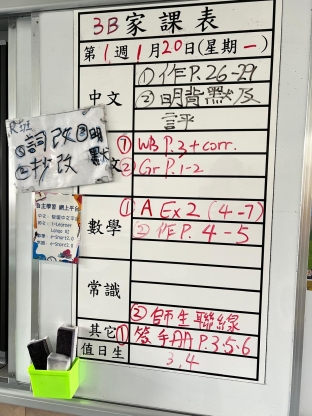 3B家課表
第1週1月20日(星期一)
中文
①作P.26-29
②明背默及
評
①詞改③明
②抄改 默
文
① WB P.2+corr.
② Gr P.1-2
自主學習 網上平台
數學
① A Ex 2 (4-7)
②作P. 4-5
常識
②師生聯線
其它
①簽手冊P.3,5,6
值日生
3,4